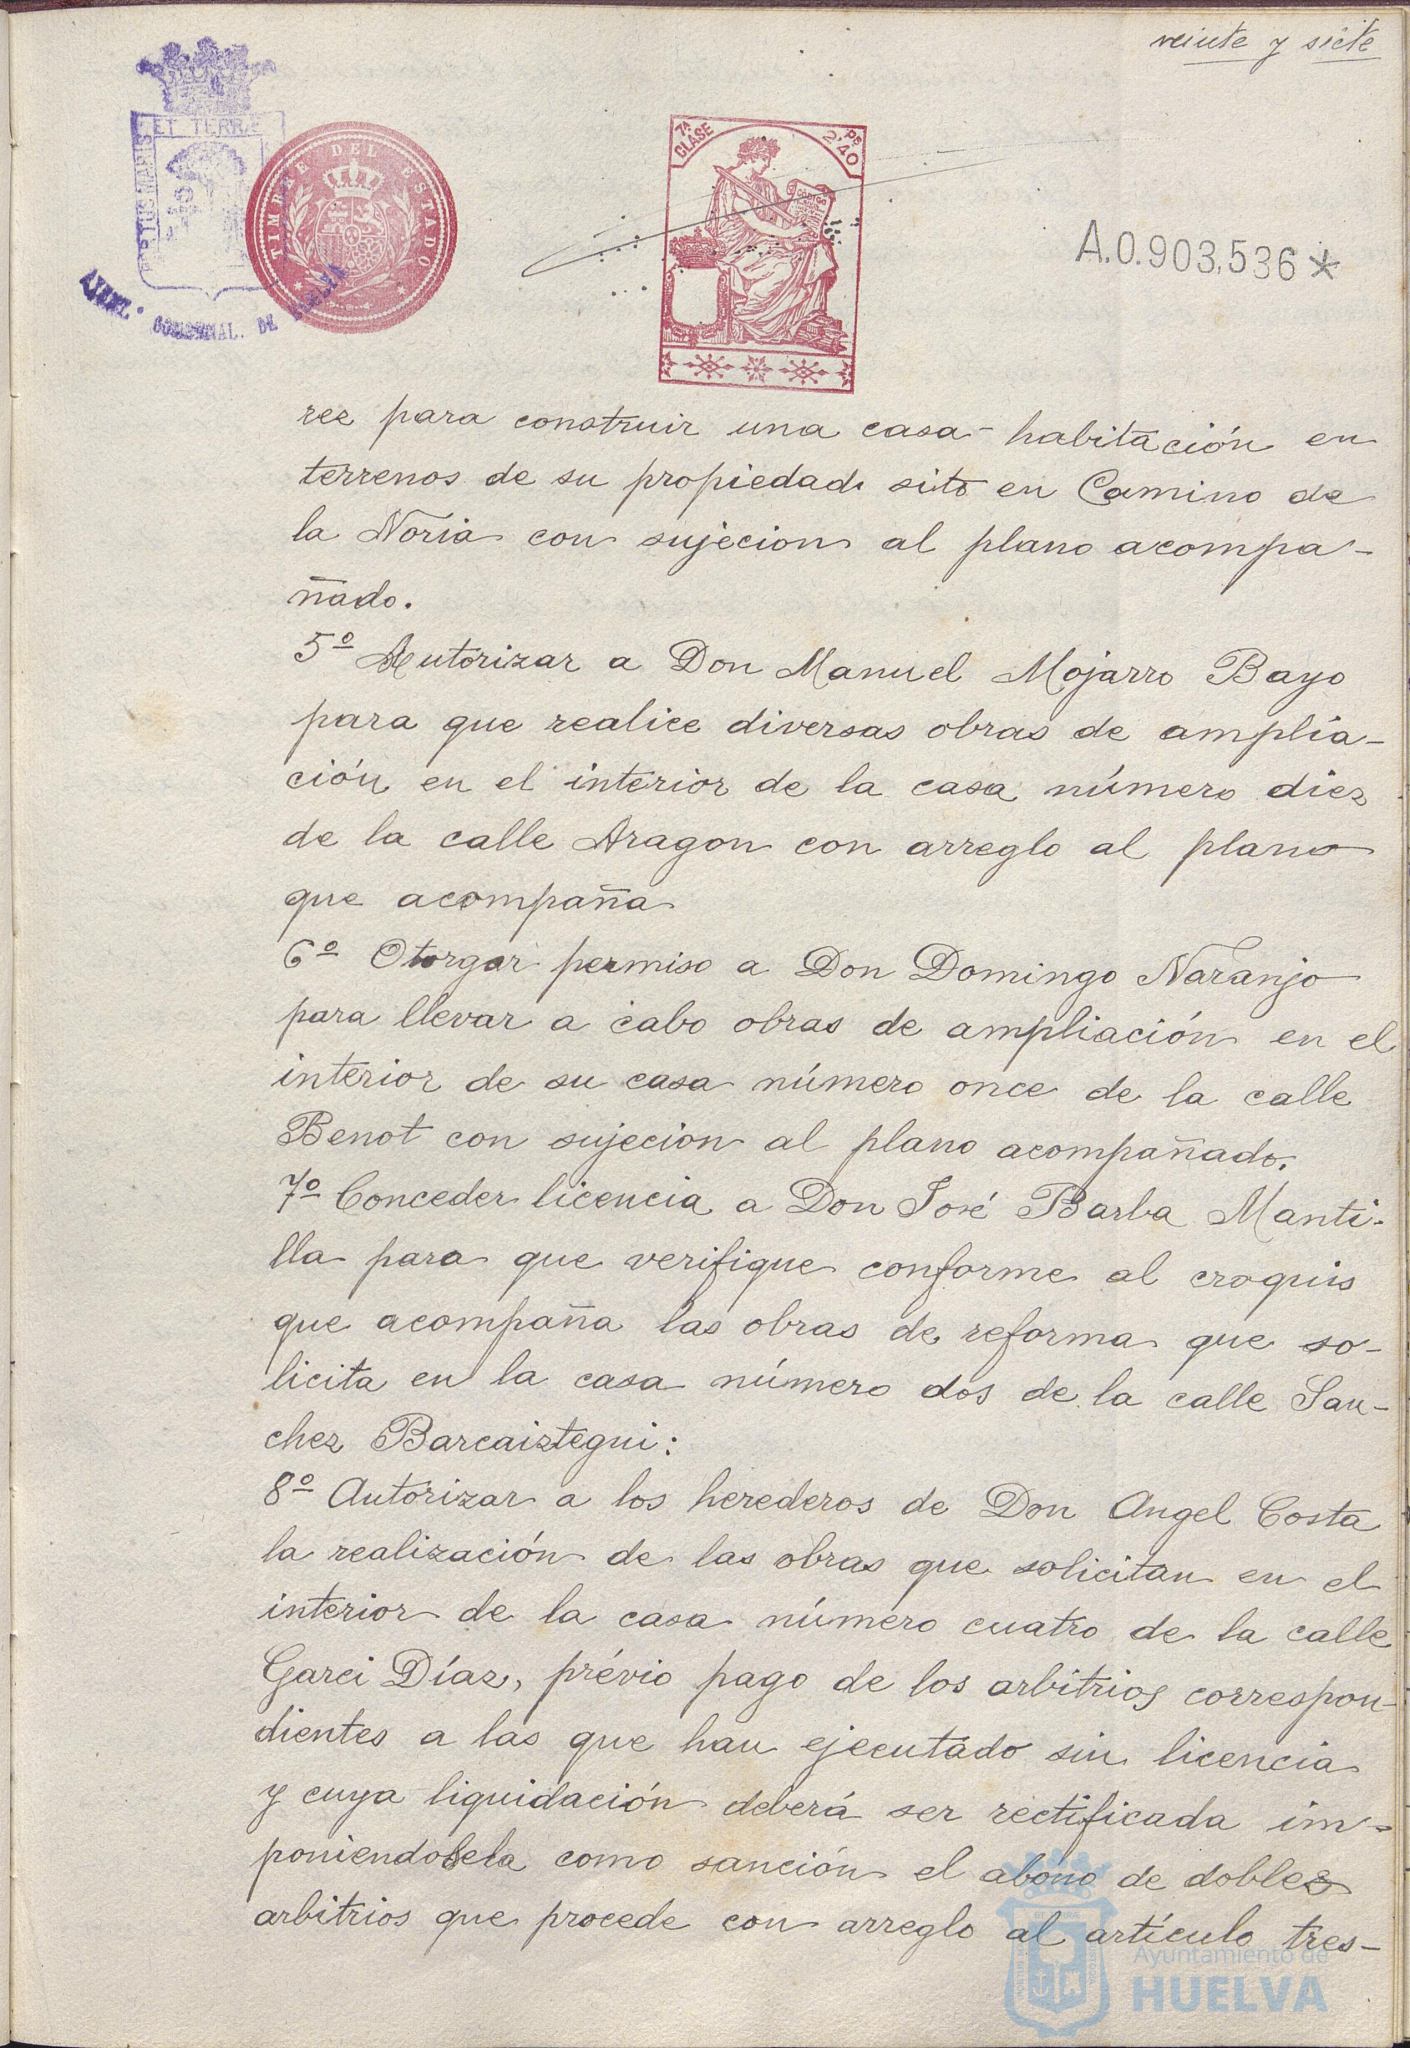 veinte y siete
ET TERRÆ
PORTUS MARIS
TIMBRE DEL ESTADO
7ª CLASE
2'40 Pts
AYUNT. CONSTITUCIONAL. DE HUELVA
A.0.903,536*
rez para construir una casa-habitación en
terrenos de su propiedad sito en Camino de
la Noria con sujecion al plano acompa-
ñado.
5º Autorizar a Don Manuel Mojarro Bayo
para que realice diversas obras de amplia-
ción en el interior de la casa número diez
de la calle Aragon con arreglo al plano
que acompaña
6º Otorgar permiso a Don Domingo Naranjo
para llevar a cabo obras de ampliación en el
interior de su casa número once de la calle
Benot con sujecion al plano acompañado.
7º Conceder licencia a Don José Barba Manti-
lla para que verifique conforme al croquis
que acompaña las obras de reforma que so-
licita en la casa número dos de la calle San-
chez Barcaiztegui:
8º Autorizar a los herederos de Don Angel Costa
la realización de las obras que solicitan en el
interior de la casa número cuatro de la calle
Garci Díaz, prévio pago de los arbitrios correspon-
dientes a las que han ejecutado sin licencia
y cuya liquidación deberá ser rectificada im-
poniendosela como sanción el abono de dobles
arbitrios que procede con arreglo al artículo tres-
Ayuntamiento de
HUELVA